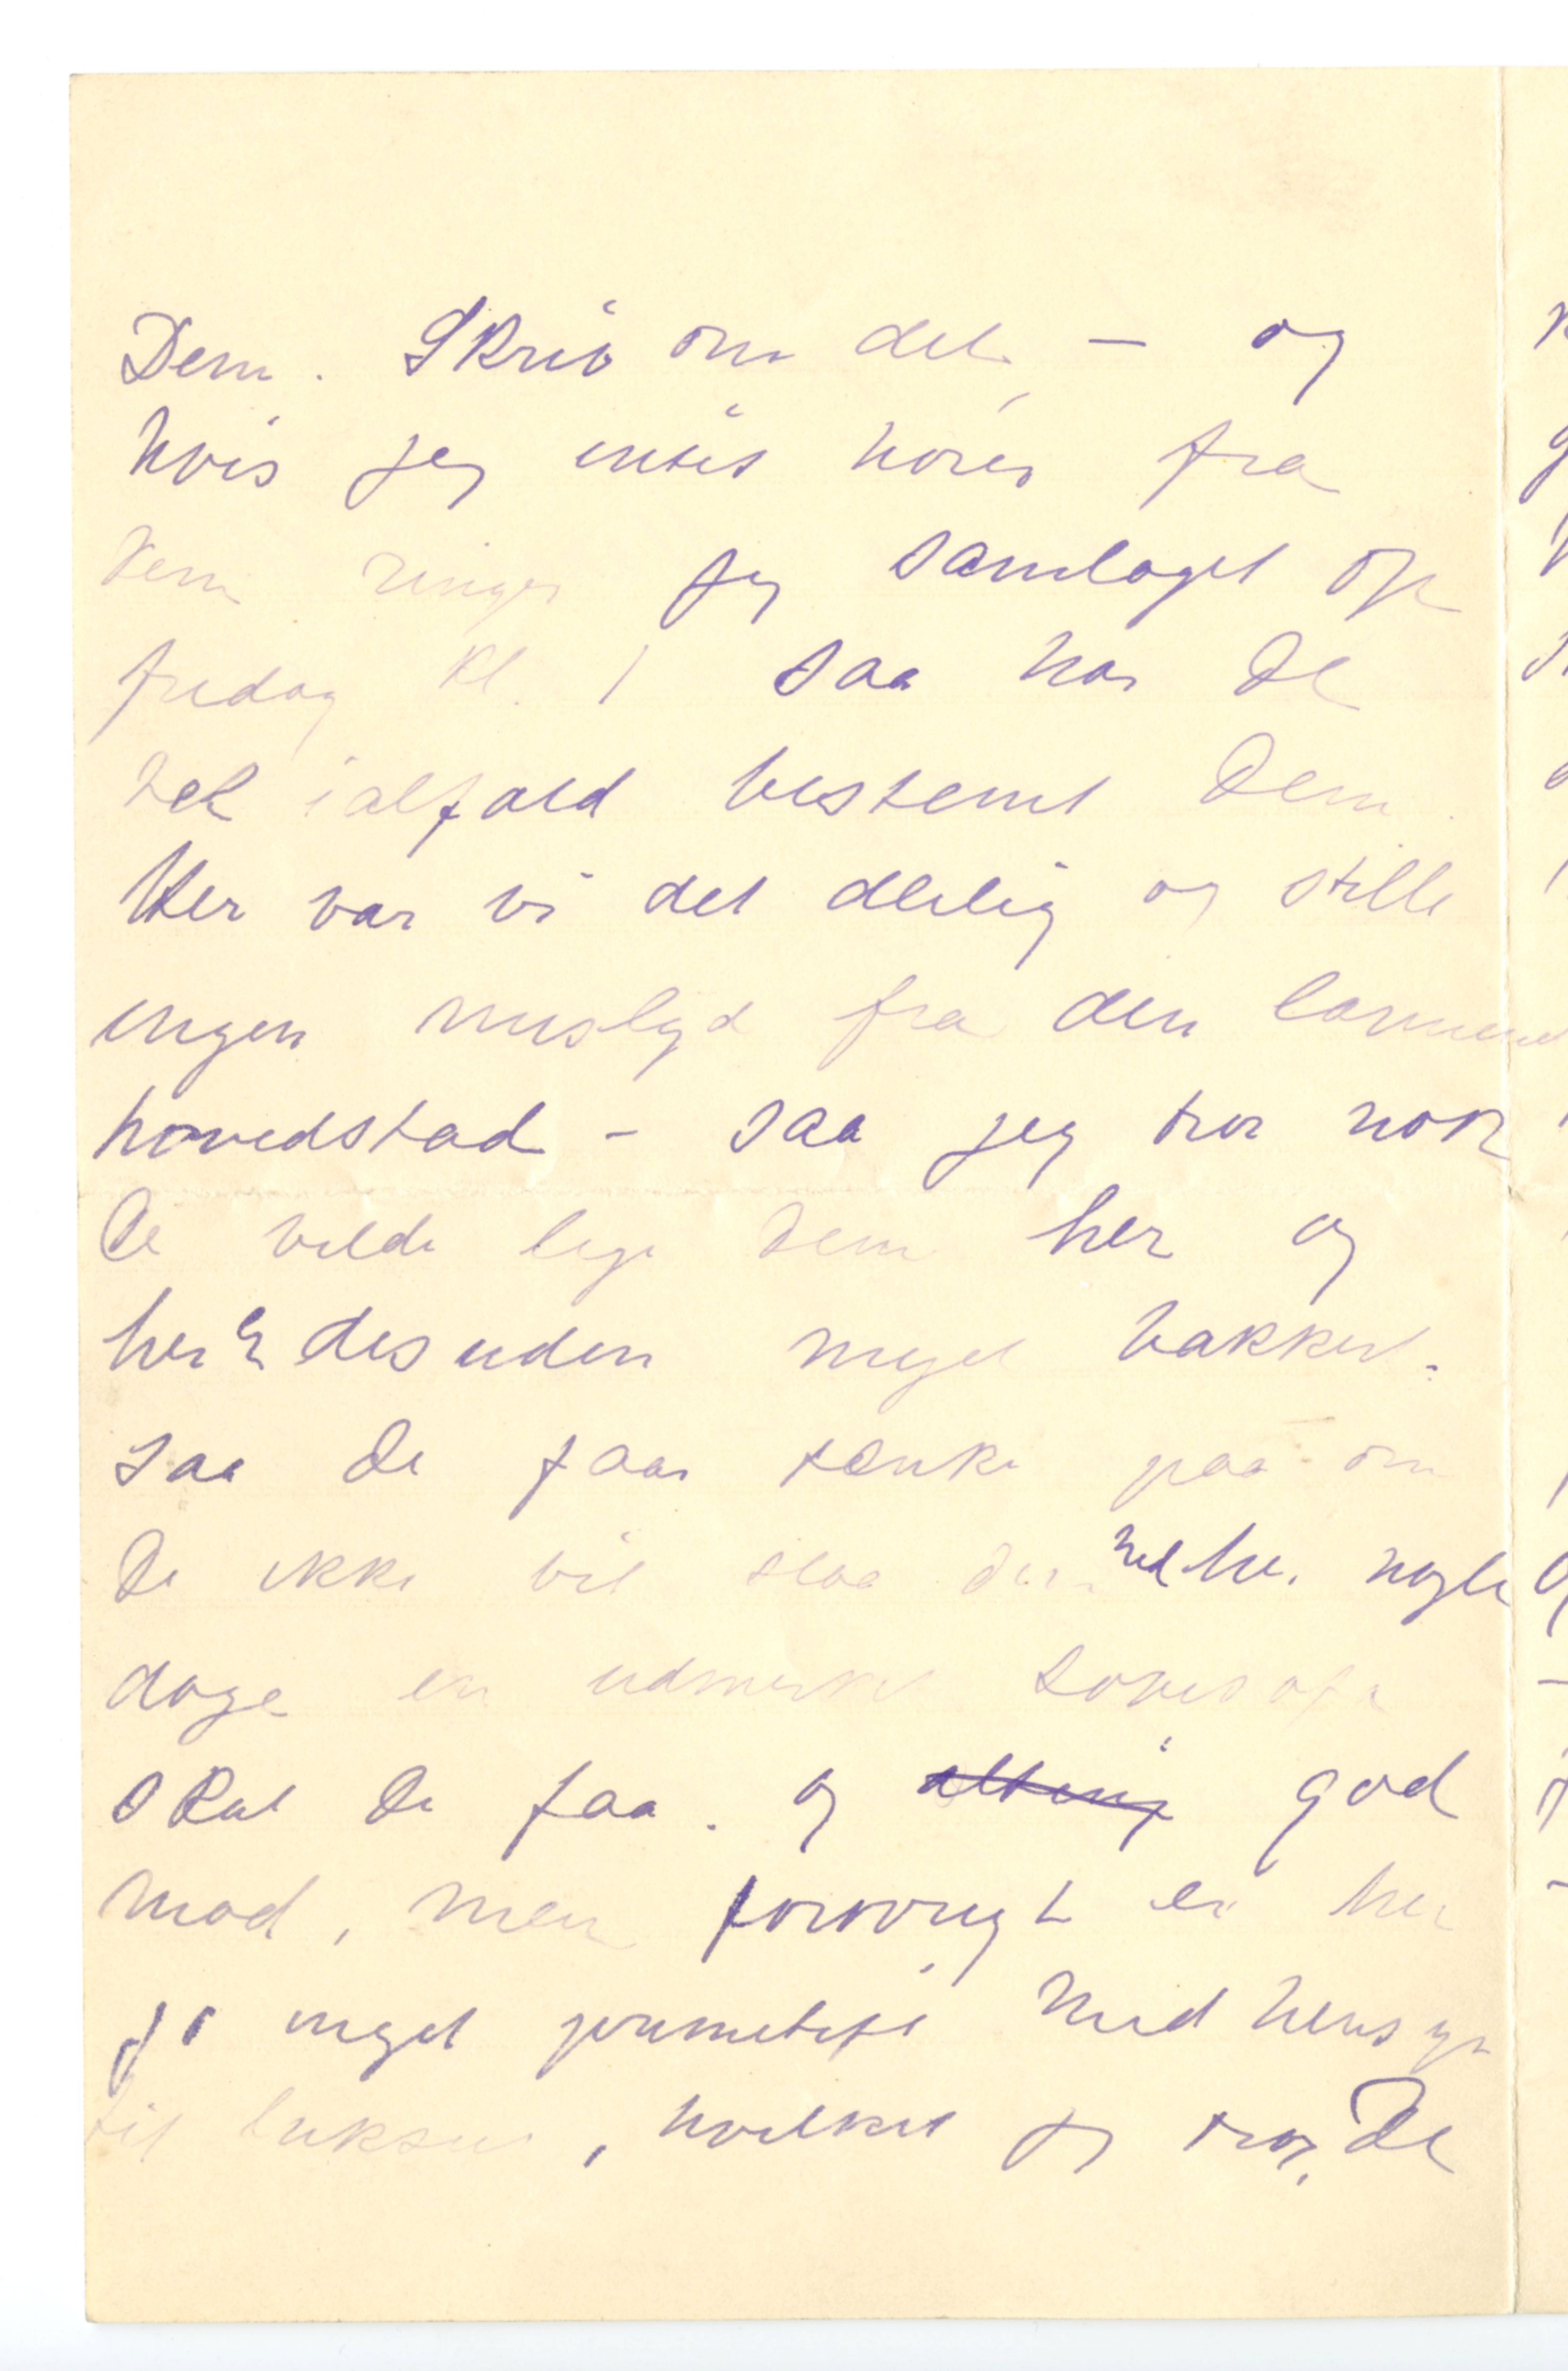 Dem. Skriv om det, – og
hvis jeg intet hører fra
Dem ringer jeg samlaget op
fredag kl. 1 saa har De
vel ialfald bestemt Dem.
Her var vi det deilig og stille
ingen mislyd fra den larmend
hovedstad – saa jeg tror nok
De vilde like Dem her og
her er desuden meget vakkert.
saa De faar tænke paa om
De ikke vil slaa Dem ned her nogle
dage en udmerket sovesofa
skal De faa. og alting god
mad, men forøvrigt er her
jo meget primitift med hensyn
til luksus, hvilket jeg tror, De